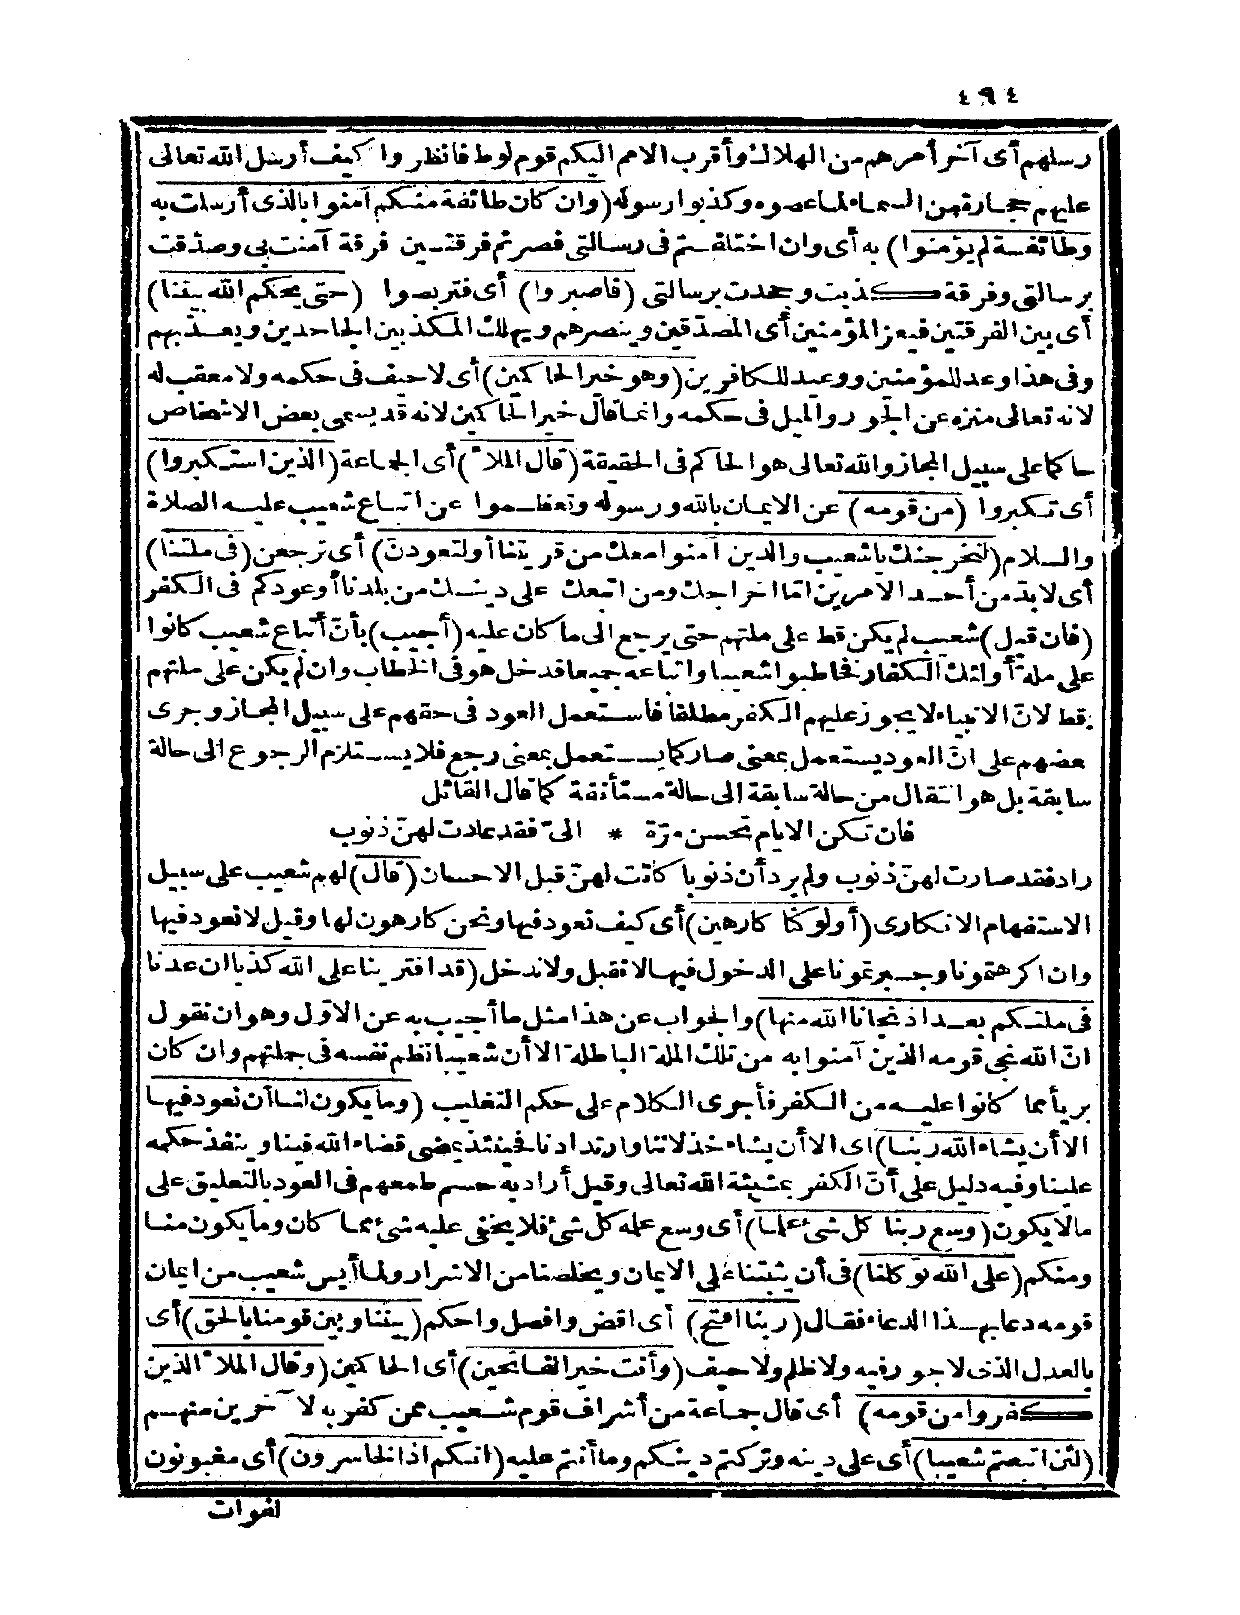 ٤٩٤
رسلهم أى آخر أمرهم من الهلاك وأقرب الامم اليكم قوم لوط فانظروا كيف أرسل الله تعالى
عليهم حجارة من السماء لما عصوه وكذبوا رسوله (وان كان طائفة منكم آمنوا بالذى أرسلت به
وطائفة لم يؤمنوا) به أى وان اختلفتم فى رسالتى فصرتم فرقتين فرقة آمنت بى وصدّقت
برسالتى وفرقة كذبت وجحدت برسالتى (فاصبروا) أى فتربصوا (حتى يحكم الله بيننا)
أى بين الفرقتين فيعز المؤمنين أى المصدّقين وينصرهم ويهلك المكذبين الجاحدين ويعذبهم
وفى هذا وعد للمؤمنين ووعيد للكافرين (وهو خير الحاكمين) أى لا حيف فى حكمه ولا معقب له
لانه تعالى منزه عن الجور والميل فى حكمه وانما قال خير الحاكمين لانه قد يسمى بعض الاشخاص
حاكما على سبيل المجاز والله تعالى هو الحاكم فى الحقيقة (قال الملأ) أى الجماعة (الذين استكبروا)
أى تكبروا (من قومه) عن الايمان بالله ورسوله وتعظموا عن اتباع شعيب عليه الصلاة
والسلام (لنخرجنك ياشعيب والذين آمنوا معك من قريتنا أو لتعودنّ) أى ترجعن (فى ملتنا)
أى لابدّ من أحد الامرين امّا اخراجك ومن اتبعك على دينك من بلدنا أو عودكم فى الكفر
(فان قيل) شعيب لم يكن قط على ملتهم حتى يرجع الى ما كان عليه (أجيب) بأنّ أتباع شعيب كانوا
على ملة أولئك الكفار فخاطبوا شعيبا واتباعه جميعا فدخل هو فى الخطاب وان لم يكن على ملتهم
قط لانّ الانبياء لا يجوز عليهم الكفر مطلقا فاستعمل العود فى حقهم على سبيل المجاز وجرى
عضهم على انّ العود يستعمل بمعنى صار كما يستعمل بمعنى رجع فلا يستلزم الرجوع الى حالة
سابقة بل هو انتقال من حالة سابقة الى حالة مستأنفة كما قال القائل
فان تكن الايام تحسن مرّة * الىّ فقد عادت لهنّ ذنوب
راد فقد صارت لهنّ ذنوب ولم يرد أن ذنوبا كانت لهنّ قبل الاحسان (قال) لهم شعيب على سبيل
الاستفهام الانكارى (أولو كنا كارهين) أى كيف نعود فيها ونحن كارهون لها وقيل لا نعود فيها
وان اكرهتمونا وجبرتمونا على الدخول فيها لا نقبل ولا ندخل (قد افترينا على الله كذبا ان عدنا
فى ملتكم بعد اذ نجانا الله منها) والجواب عن هذا مثل ما أجيب به عن الاوّل وهو ان نقول
انّ الله نجى قومه الذين آمنوا به من تلك الملة الباطلة الا أن شعيبا نظم نفسه فى جملتهم وان كان
بريأ مما كانوا عليه من الكفر فأجرى الكلام على حكم التغليب (وما يكون لنا أن نعود فيها
الا أن يشاء الله ربنا) اى الا أن يشاء خذلاننا وارتدادنا فحينئذ يمضى قضاء الله فينا وينفذ حكمه
علينا وفيه دليل على أنّ الكفر بمشيئة الله تعالى وقيل أراد به حسم طمعهم فى العود بالتعليق على
مالا يكون (وسع ربنا كل شئ علما) أى وسع علمه كل شئ فلا يخفى عليه شئ مما كان وما يكون منا
ومنكم (على الله توكلنا) فى أن يثبتنا على الايمان ويخلصنا من الاشرار ولما أيس شعيب من ايمان
قومه دعا بهذا الدعاء فقال (ربنا افتح) أى اقض وافصل واحكم (بيننا وبين قومنا بالحق) أى
بالعدل الذى لا جور فيه ولا ظلم ولا حيف (وأنت خير الفاتحين) أى الحاكمين (وقال الملأ الذين
كفروا من قومه) أى قال جماعة من أشراف قوم شعيب ممن كفر به لآخرين منهم
(لئن اتبعتم شعيبا) أى على دينه وتركتم دينكم وما أنتم عليه (انكم اذا لخاسرون) أى مغبونون
لفوات